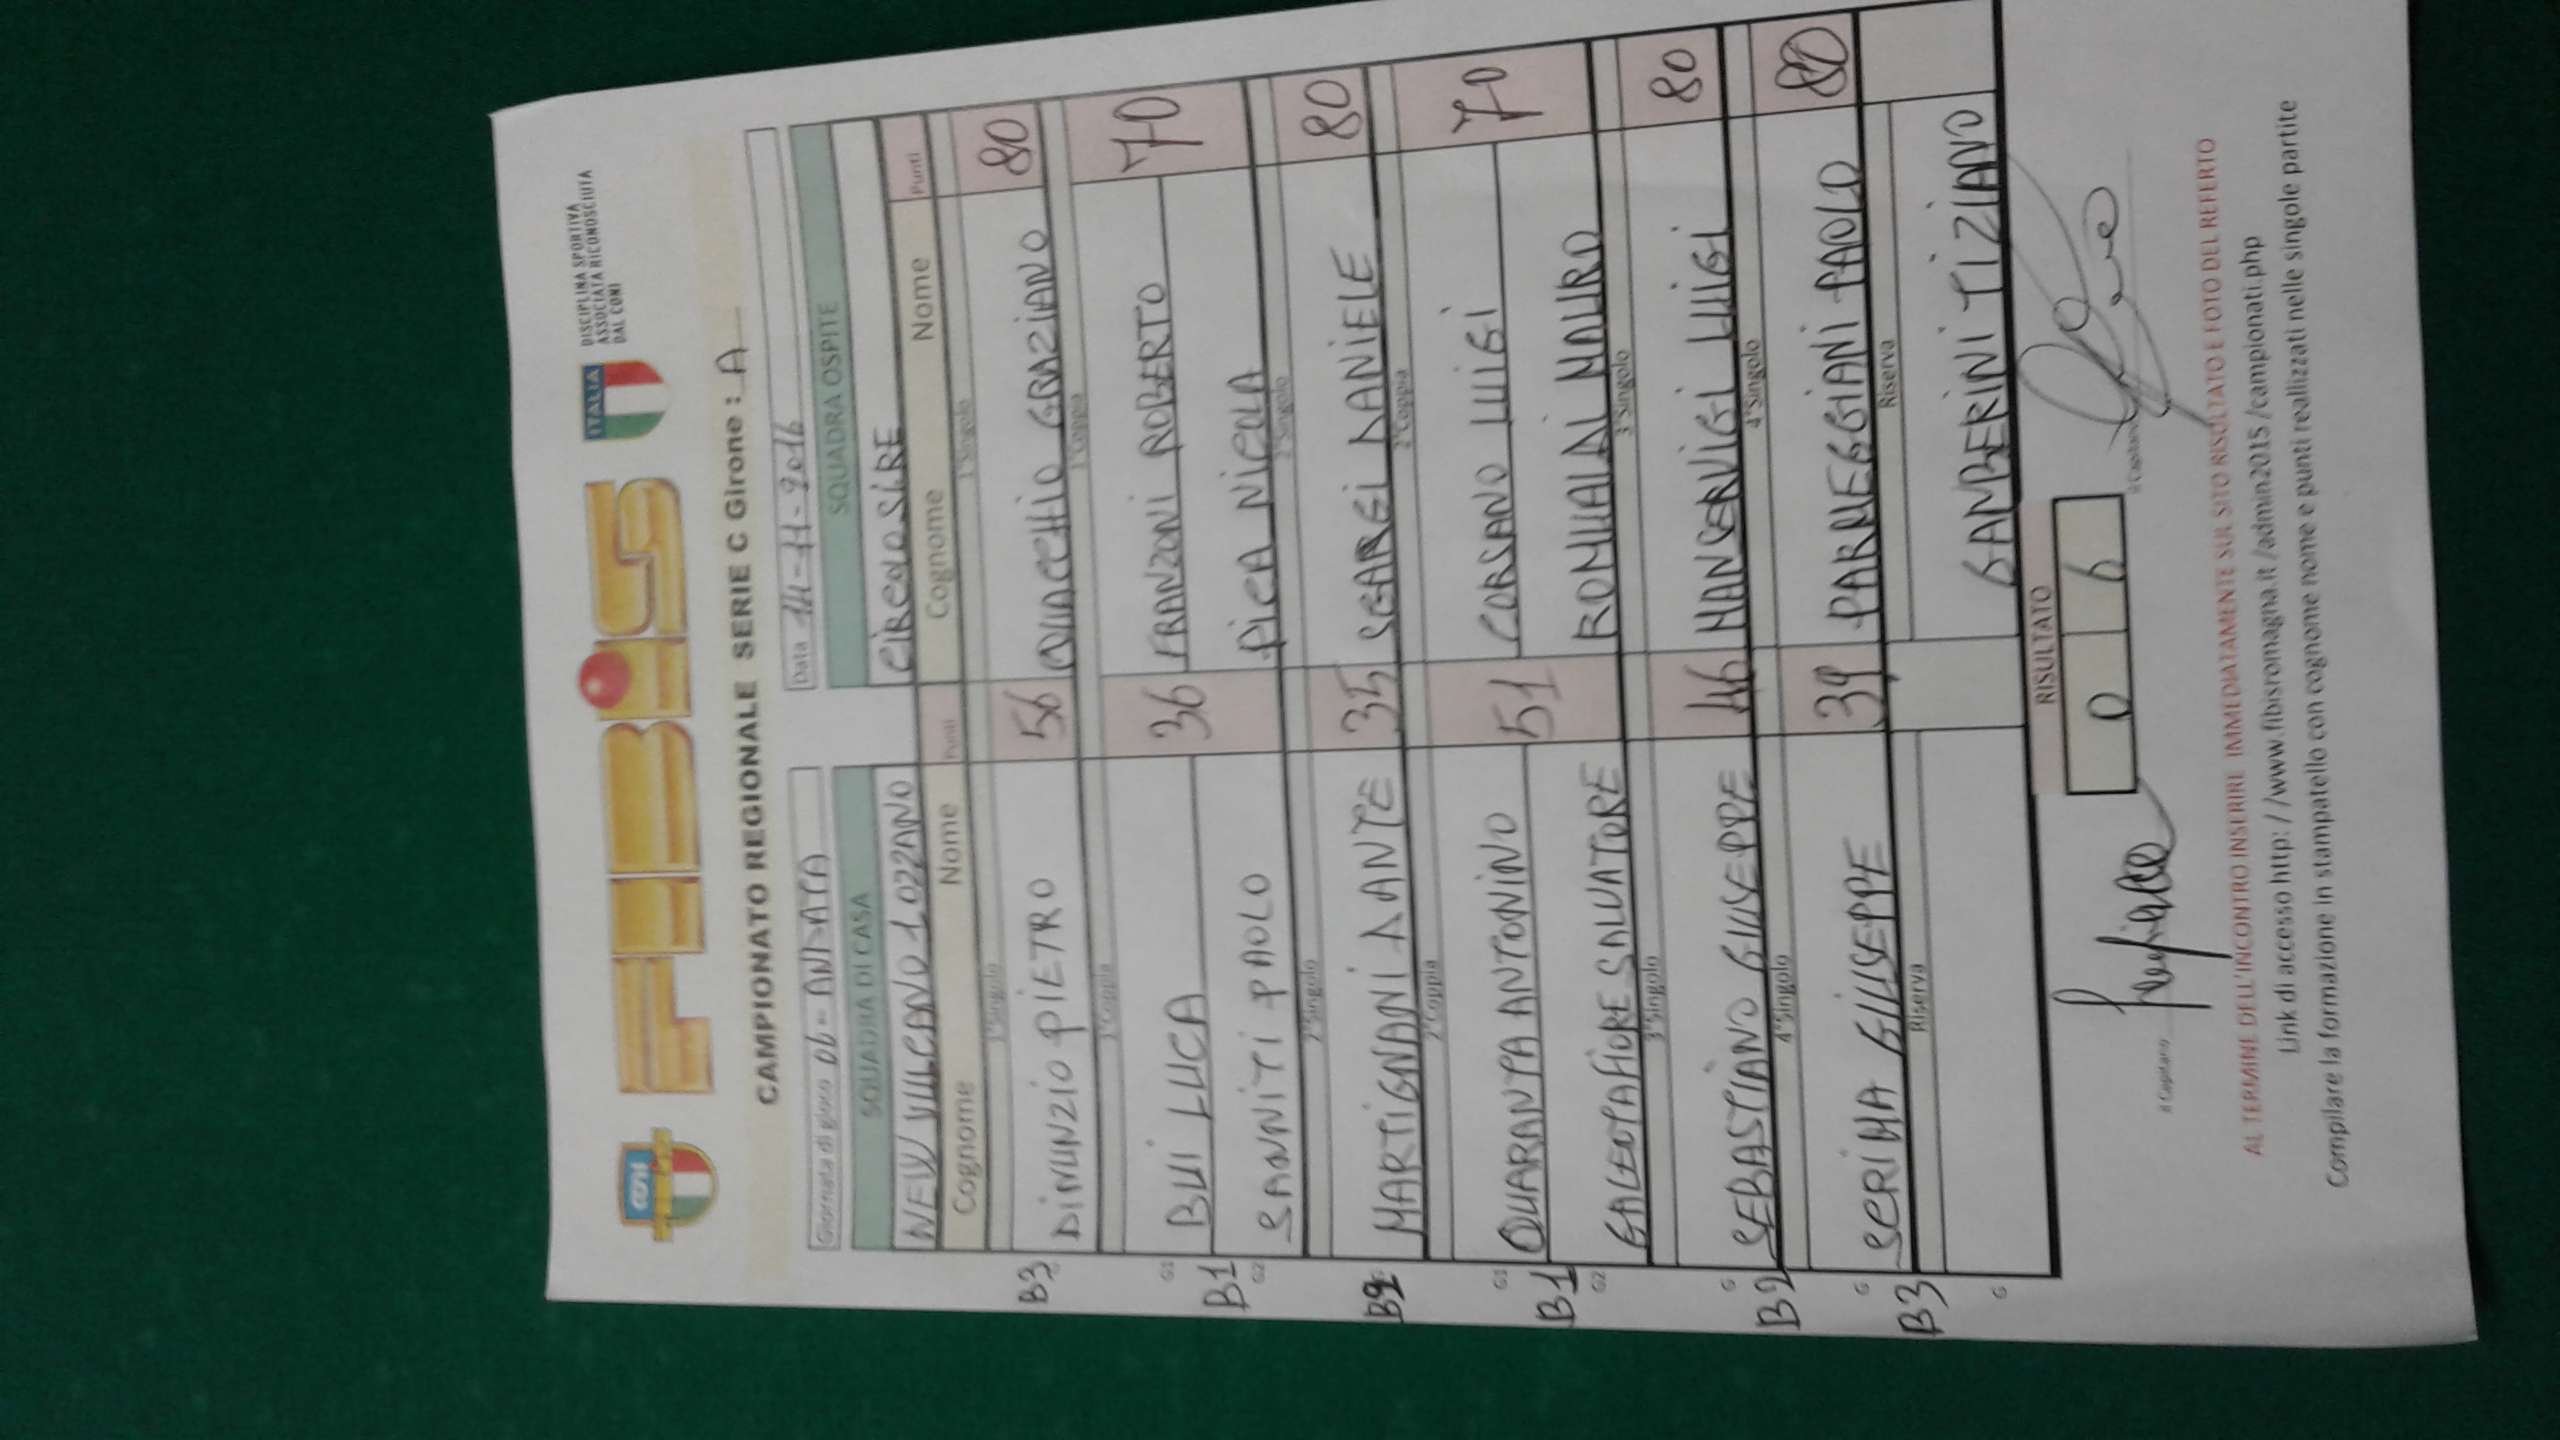 CONI
FIBiS
ITALIA
DISCIPLINA SPORTIVA
ASSOCIATA RICONOSCIUTA
DAL CONI
CAMPIONATO REGIONALE SERIE C Girone : A
Giornata di gioco 06 - ANDATA Data 14-11-2016
SQUADRA DI CASA SQUADRA OSPITE
NEW VULCANO LOZZANO CIRCOLO SIRE
Cognome Nome Punti Cognome Nome Punti
1°Singolo 1°Singolo
B3 DINUNZIO PIETRO 56 QUACCHIO GRAZIANO 80
1°Coppia 1°Coppia
G1 BUI LUCA 36 FRANZONI ROBERTO 70
B1
G2 SANNITI PAOLO PICA NICOLA
2°Singolo 2°Singolo
B2 MARTIGNANI DANTE 35 SGARGI DANIELE 80
2°Coppia 2°Coppia
G1 QUARANTA ANTONINO 51 CORSANO LUIGI 70
B1
G2 GALEOTAFIORE SALVATORE ROMUALDI MAURO
3°Singolo 3°Singolo
G
B2 SEBASTIANO GIUSEPPE 46 MANSERVIGI LUIGI 80
4°Singolo 4°Singolo
G
B3 SCRIMA GIUSEPPE 39 PARMEGGIANI PAOLO 80
Riserva Riserva
G GAMBERINI TIZIANO
RISULTATO
il Capitano 0 6 il Capitano
AL TERMINE DELL'INCONTRO INSERIRE IMMEDIATAMENTE SUL SITO RISULTATO E FOTO DEL REFERTO
Link di accesso http://www.fibisromagna.it/admin2015/campionati.php
Compilare la formazione in stampatello con cognome nome e punti realizzati nelle singole partite